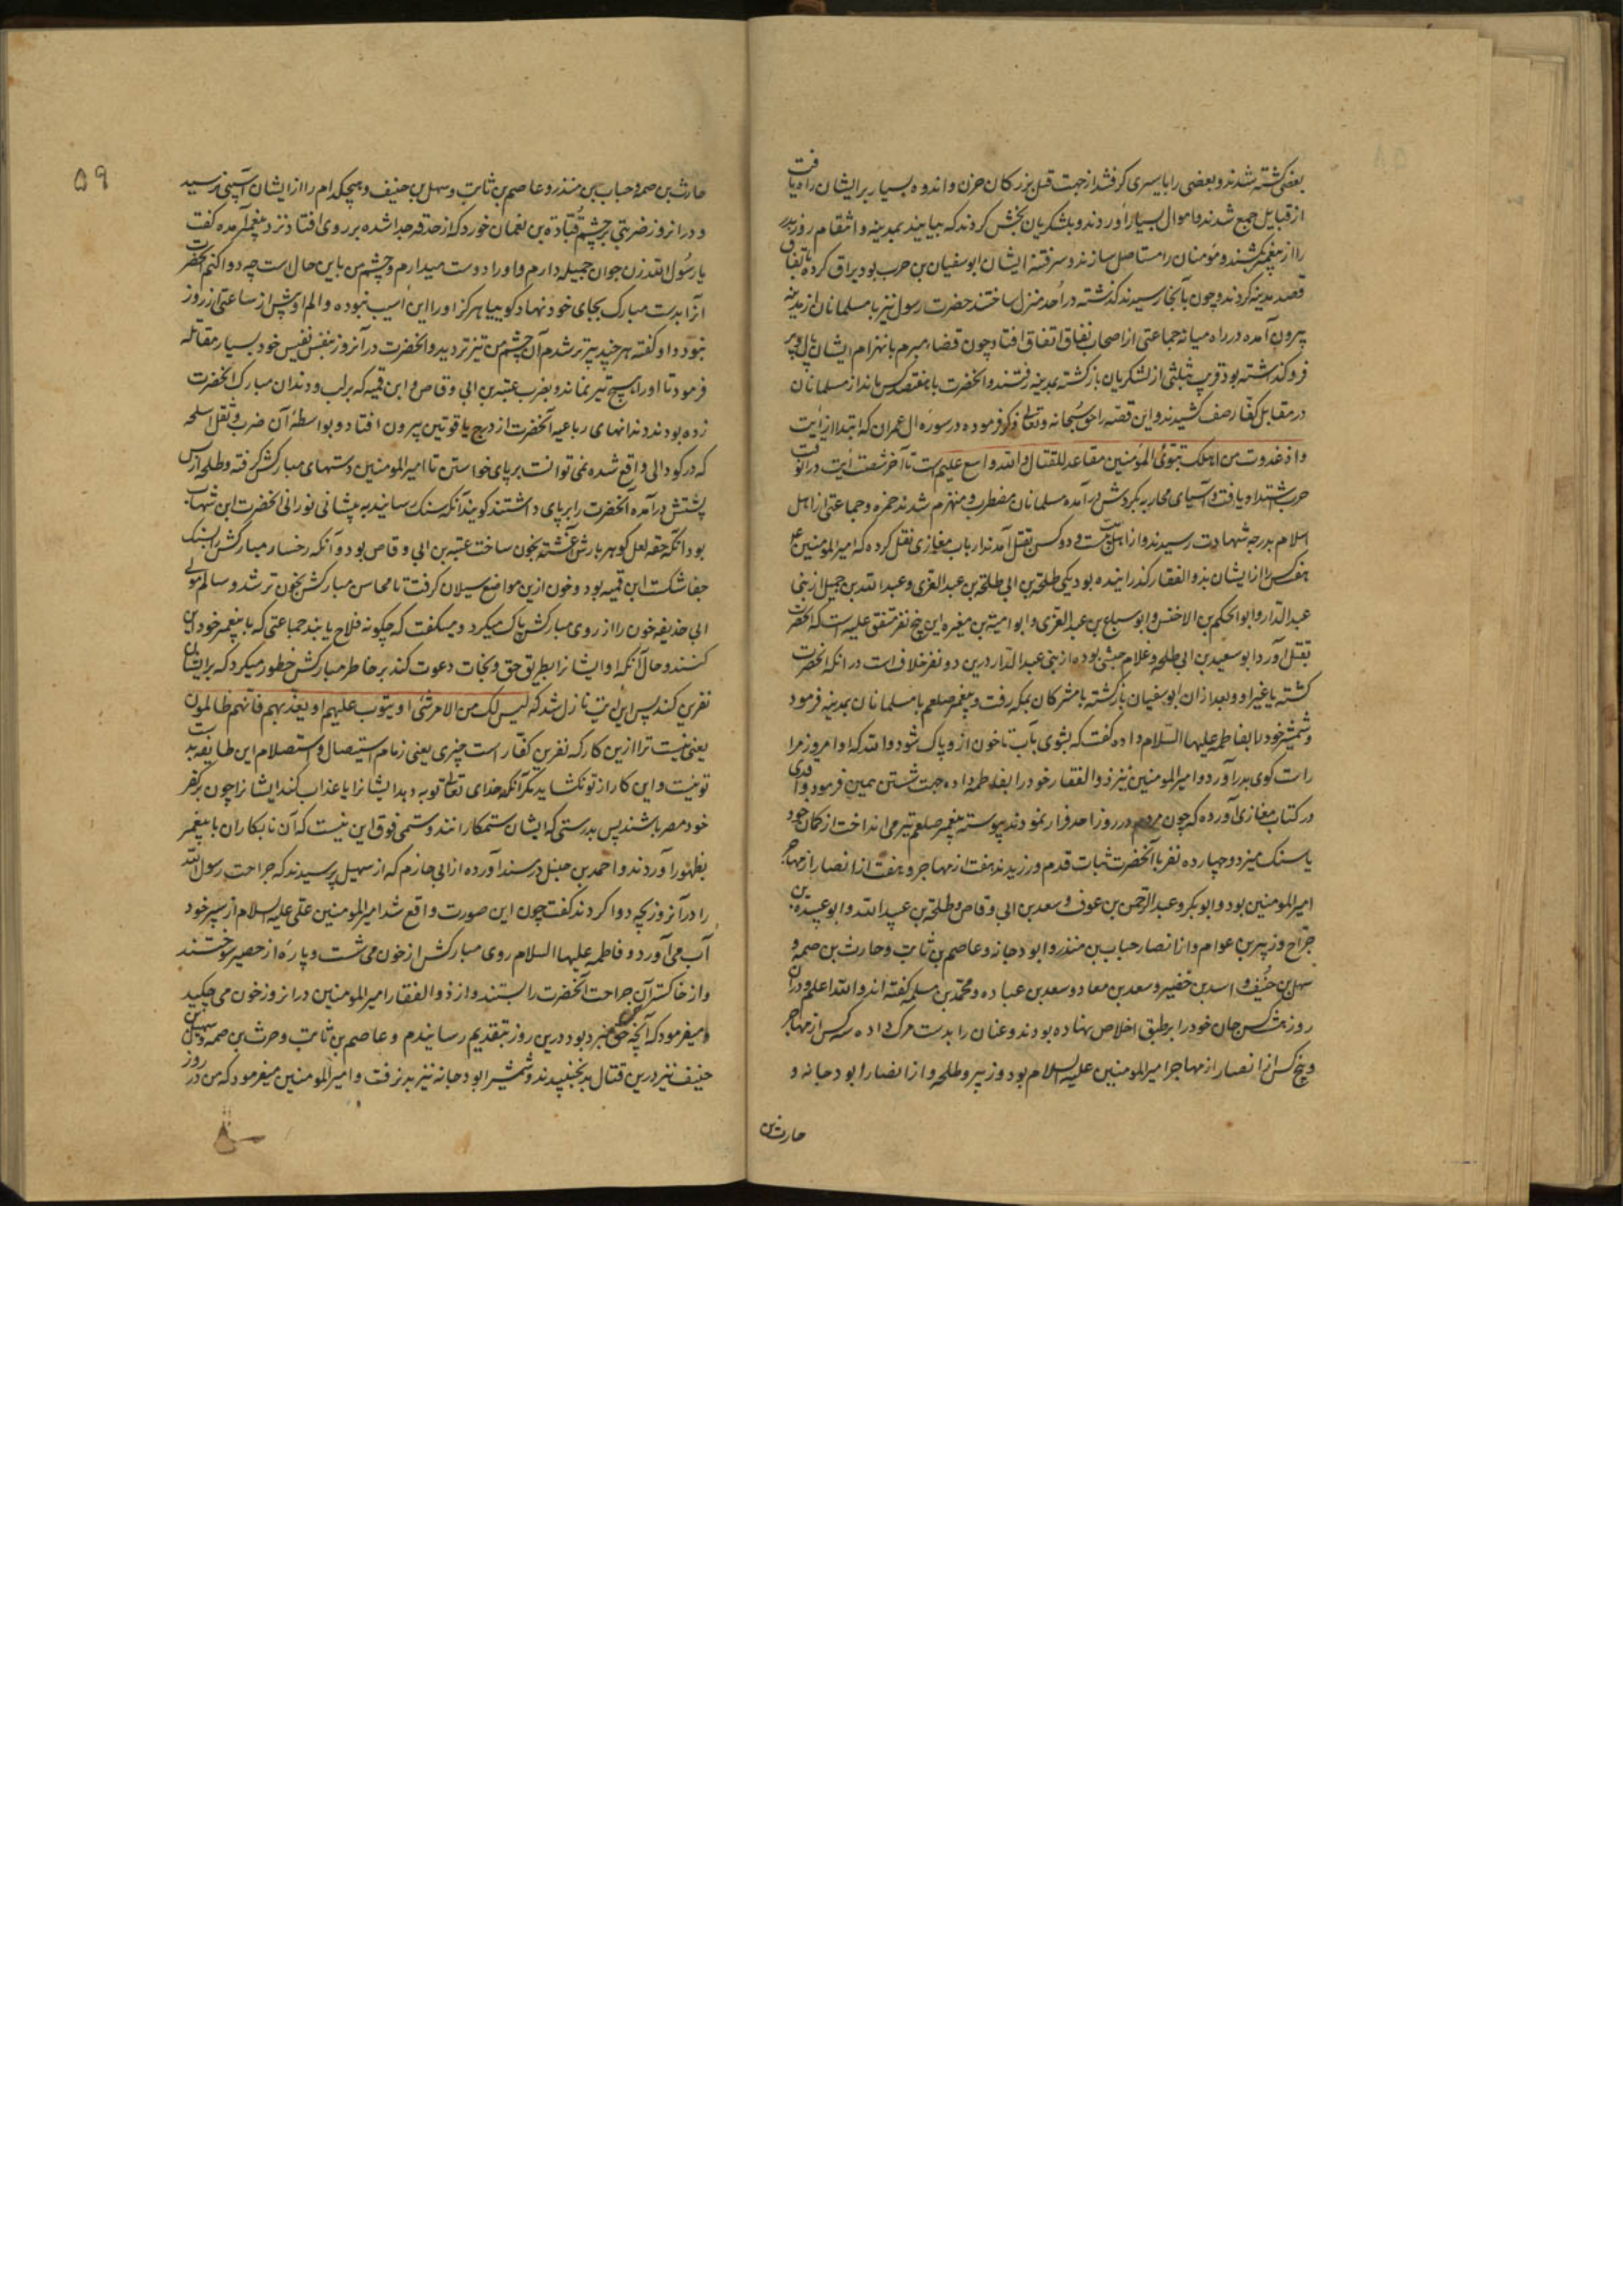 بعضی کشته شدند و بعضی را باسیری کرفتند از جهت قتل بزرکان حزن و اندوه بسیار بر ایشان راه یافت
از قبایل جمع شدند و اموال بسیار آوردند و بلشکریان بخش کردند که بیایند بمدینه و انتقام روز بدر
را از پیغمبر کشند و مؤمنان را مستاصل سازند و سر فتنه ایشان ابوسفیان بن حرب بود یراق کرده باتفاق
قصد مدینه کردند و چون بآنجا رسیدند کذشته در اُحد منزل ساختند حضرت رسول نیز با مسلمانان از مدینه
بیرون آمده در راه میانه جماعتی از اصحاب نفاق اتفاق افتاد چون قضاء مبرم بانهزام ایشان
فرو کذاشته بود قریب بثلثی از لشکریان بازکشته بمدینه رفتند و آنحضرت با هفتصد کس ماند از مسلمانان
در مقابل کفّار صف کشیدند و این قصّه را حق سُبحانه و تعالی ذکر فرموده در سورۀ ال عمران که ابتدا از آیت
واذ غدوت من اهلک تبوّئ المؤمنین مقاعد للقتال والله واسع علیم است تا آخر شصت آیت در آنوقت
حرب اشتداد یافت و آسیای محاربه بکردش در آمده مسلمانان مضطرب و منهزم شدند حمزه و جماعتی از اهل
اسلام بدرجه شهادت رسیدند و از اهل بیت و دو کس بقتل آمدند ارباب مغازی نقل کرده که امیرالمومنین علی
هفت کس را از ایشان بذوالفقار کذرانیده بود یکی طلحة بن ابی طلحة بن عبدالعزی و عبدالله بن جمیل از بنی
عبدالدّار و ابوالحکم بن الاخنس و ابو سباع بن عبدالعزی و ابو امیّه بن مغیره این پنج نفر متفق علیه است که آنحضرت
بقتل آورد ابو سعید بن ابی طلحه و غلام حبشی بوده از بنی عبدالدار درین دو نفر خلاف است در انکه انحضرت
کشته یا غیر او و بعد از ان ابوسفیان بازکشته با مشرکان بمکه رفت و پیغمبر صلعم با مسلمانان بمدینه فرمود
و شمشیر خود را بفاطمه علیها السّلام داده کفت که بشوی بآب تا خون از و پاک شود والله که او امروز مرا
راست کوی بدر آورد و امیرالمومنین نیز ذوالفقار خود را بفاطمه داده جهت شستن همین فرمود واقدی
در کتاب مغازی آورده که چون مردم در روز احد فرار نمودند پیوسته پیغمبر صلعم تیر می انداخت از کمان خود
یا سنک میزد و چهارده نفر با آنحضرت ثبات قدم ورزیدند هفت از مهاجر و هفت از انصار از مهاجر
امیرالمومنین بود و ابوبکر و عبدالرّحمن بن عوف و سعد بن ابی وقاص و طلحة بن عبیدالله و ابو عبیدة بن
جرّاح و زبیر بن عوام و از انصار حباب بن منذر و ابودجانه و عاصم بن ثابت و حارث بن صمه و
سهل بن حنُیف و اسد بن خضیر و سعد بن معاد و سعد بن عباده و محمّد بن مسلمه کفته اند والله اعلم و در ان
روز هشت کس جان خود را بر طبق اخلاص نهاده بودند و عنان را بدست مرک داده سه کس از مهاجر
و پنج کس از انصار از مهاجر امیرالمومنین علیه السلام بود و زبیر و طلحه و از انصار ابودجانه و
حارث بن
۵۹
حارث بن صمه و حباب بن منذر و عاصم بن ثابت و سهل بن حنیف و هیچکدام را از ایشان آسیبی نرسید
و در انروز ضربتی بر چشم قُتادة بن نعمان خورد که از حدقه جدا شده بر روی افتاد نزد پیغمبر آمده کفت
یا رسُول الله زن جوان جمیله دارم و او را دوست میدارم و چشم من باین حال است چه دوا کنم آنحضرت
آنرا بدست مبارک بجای خود نهاد کوییا هرکز او را این آسیب نبوده و الم او پیش از ساعتی از روز
نبود و او کفته هر چند پیرتر شدم آن چشم من تیزتر دید و آنحضرت در آنروز بنفس نفیس خود بسیار مقاتله
فرمود تا او را هیچ تیر نماند و بضرب عتبه بن ابی وقاص و ابن قمیه که بر لب و دندان مبارک آنحضرت
زده بودند دندانهای رباعیه آنحضرت از درج یاقوتین بیرون افتاد و بواسطۀ آن ضرب و ثقل اسلحه
که در کودالی واقع شده نمی توانست بر پای خواستن تا امیرالمومنین دستهای مبارکش کرفته و طلحه از پس
پشتش در آمده آنحضرت را بر پای داشتند کویند آنکه سنک رسانید به پیشانی نورانی آنحضرت ابن شهاب
بود انکه حقه لعل کوهر بارش آغشته بخون ساخت عتبه بن ابی وقاص بود و آنکه رخسار مبارکش را بسنک
جفا شکست ابن قمیه بود و خون ازین مواضع سیلان کرفت تا محاسن مبارکش بخون تر شد و سالم مولی
ابی حذیفه خون را از روی مبارکش پاک میکرد و میکفت که چکونه فلاح یابند جماعتی که با پیغمبر خود این
کنند و حال آنکه او ایشانرا بطریق حق و نجات دعوت کند بر خاطر مبارکش خطور میکرد که بر ایشان
نفرین کند پس این آیت نازل شد که لیس لک من الامر شئ او یتوب علیهم او یعذبهم فانّهم ظالمون
یعنی نیست ترا ازین کار که نفرین کفّار است چیزی یعنی زمام استیصال و استصلام این طایفه بدست
تو نیست و این کار از تو نکشاید مکر آنکه خدای تعالی توبه دهد ایشانرا یا عذاب کند ایشانرا چون بر کفر
خود مصر باشند پس بدرستی که ایشان ستمکارانند و ستمی فوق این نیست که آن نابکاران با پیغمبر
بظهُور آوردند و احمد بن حنبل در سند آورده از ابی حازم که از سهیل پرسیدند که جراحت رسول الله
را در آنروز بچه دوا کردند کفت چون این صورت واقع شد امیرالمومنین علی علیه السلام از سپر خود
آب می آورد و فاطمه علیها السلام روی مبارکش از خون می شست و پارۀ از حصیر سوختند
و از خاکستر آن جراحت آنحضرت را بستند و از ذوالفقار امیرالمومنین در انروز خون می چکید
و میفرمود که آنچه حق نبرد بود درین روز بتقدیم رسانیدم و عاصم بن ثابت و حرث بن صمه و سهل بن
حنیف نیز درین قتال بد نجنبیدند و شمشیر ابودجانه نیز بد نرفت و امیرالمومنین میفرمود که من در روز